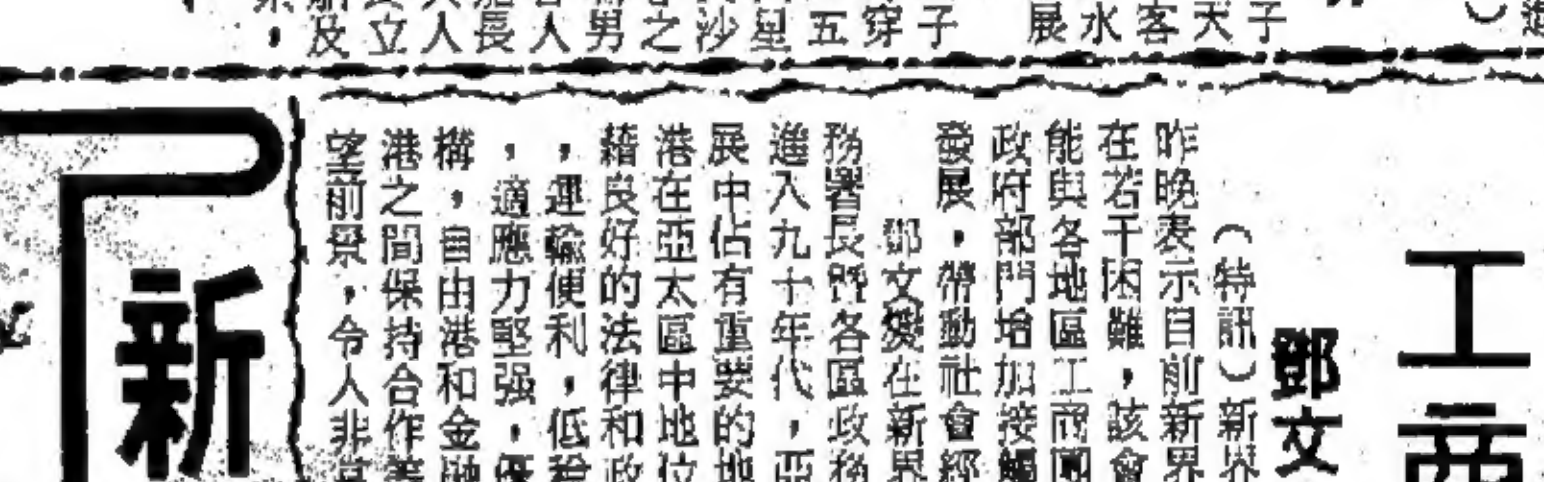 子天客水展
子穿五星沙之男人長人立及,
工商
鄧文
(特訊)新界
昨晚表示目前新界
在若干困難,該會
能與各地區工商團
政府部門增加接觸
發展,帶動社會經
鄧文燦在新界
務署長暨各區政務
進入九十年代,亞
展中佔有重要的地
港在亞太區中地位
藉良好的法律和政
,運輸便利,低
,適應力堅强,
構,自由港和金融
港之間保持合作等
望前景,令人非
新